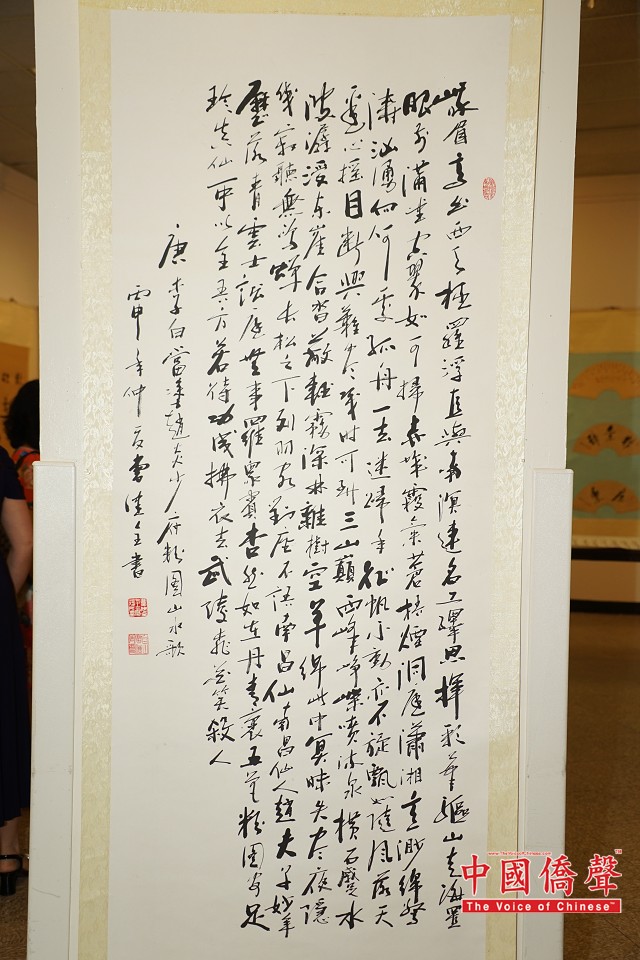 峨眉高出西天極羅浮直與南溟連名工繹思揮彩筆驅山走海置
眼前滿堂空翠如可掃赤城霞氣蒼梧煙洞庭瀟湘意渺綿驚
濤洶湧向何處孤舟一去迷歸年征帆不動亦不旋飄如隨風落天
邊心搖目斷興難盡幾時可到三山巔西峰崢嶸噴流泉橫石蹙水
波潺湲東崖合沓蔽輕霧深林雜樹空芊綿此中冥昧失晝夜隱
幾寂聽無鳴蟬長松之下列羽客對座不語南昌仙南昌仙人趙夫子妙年
歷落青雲士訟庭無事羅眾賓杳然如在丹青裏五色粉圖安足
珍真仙可以全吾身若待功成拂衣去武陵桃花笑殺人
唐李白當塗趙炎少府粉圖山水歌
丙申年仲夏書
中國僑聲
The Voice of Chinese™